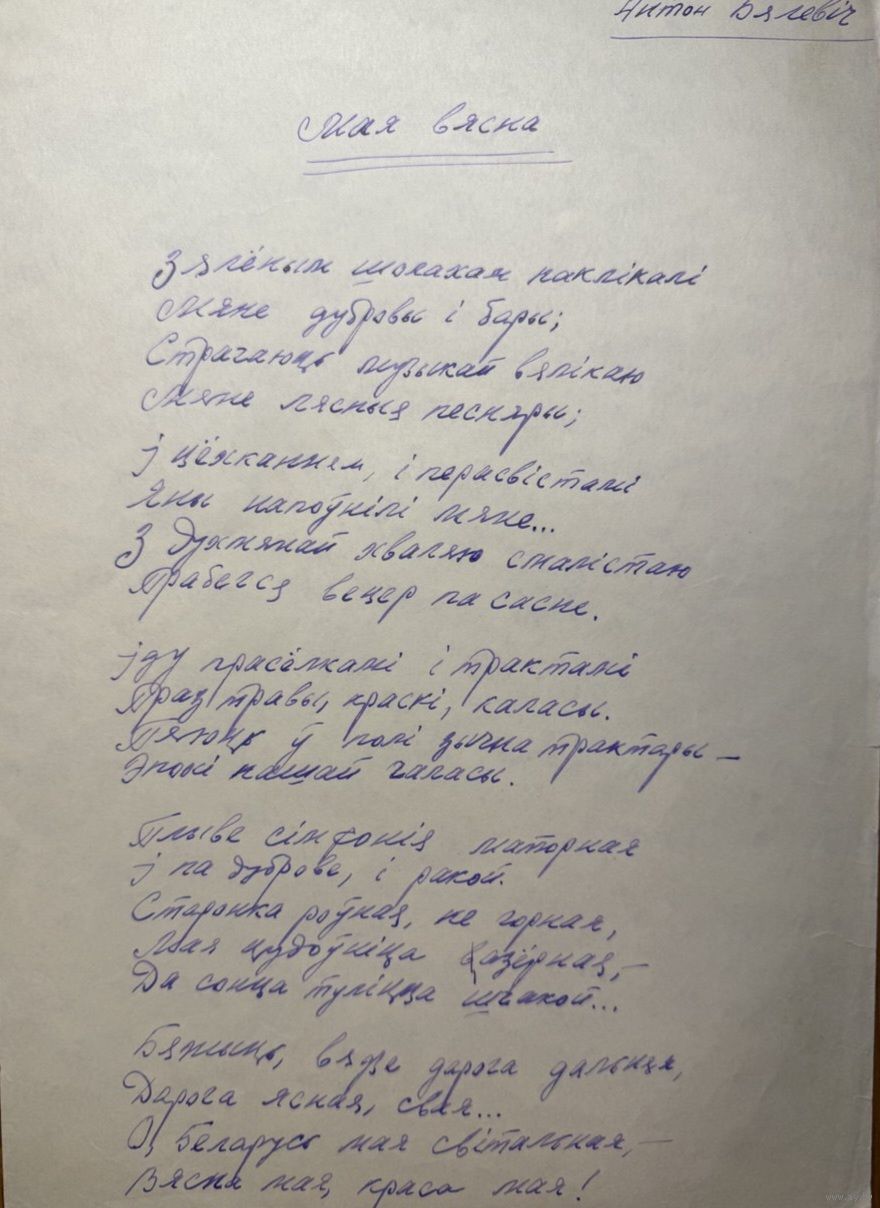 Антон Бялевіч
Мая вясна
Зялёным шолахам паклікалі
Мяне дубровы і бары;
Страчаюць музыкай вялікаю
Мяне лясныя песняры;
І цёхканнем, і перасвістамі
Яны напоўнілі мяне...
З духмянай хваляю смалістаю
Прабегся вецер па сасне.
Іду прасёлкамі і трактамі
Праз травы, краскі, каласы.
Пяюць ў полі зычна трактары —
Эпохі нашай галасы.
Плыве сімфонія маторная
І па дуброве, і ракой.
Старонка роўная, не горная,
Мая цудоўніца азёрная, —
Да сонца туліцца шчакой...
Бяжыць, вядзе дарога дальняя,
Дарога ясная, свая...
О, Беларусь мая світальная, —
Вясна мая, краса мая!